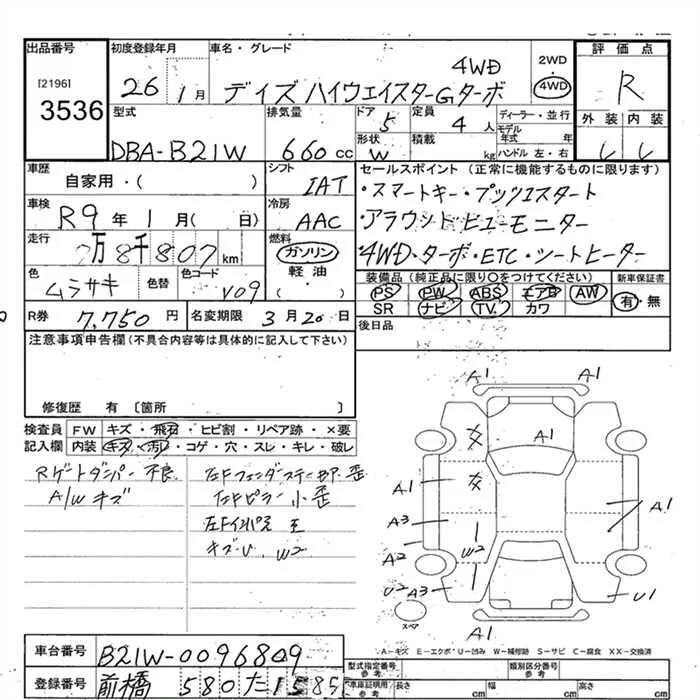 出品番号 初度登録年月 車名・グレード 評価点
[2196] 2WD
3536 26 1月 デイズ ハイウェイスターGターボ 4WD 4WD R
型式 排気量 ドア 5 定員 4人 ディーラー・並行 外装 内装
DBA-B21W 660cc 形状 W 積載 kg モデル年式 年 ハンドル 左・右
車歴 自家用・( ) シフト IAT セールスポイント(正常に機能するものに限ります)
・スマートキー・プッシュスタート
車検 R9年1月( 日) 冷房 AAC ・アラウンドビューモニター
走行 7万8千807km 燃料 ガソリン ・4WD・ターボ・ETC・シートヒーター
軽油・( )
色 ムラサキ 色替 色コード V09 装備品(純正品に限り○をつけてください) 新車保証書
PS PW ABS エアB AW 有・無
SR ナビ TV カワ
R券 7,750円 名変期限 3月20日 後日品
注意事項申告欄(不具合内容等は具体的に記入して下さい)
修復歴 有 〔箇所 〕
検査員 FW キズ・飛石・ヒビ割・リペア跡・×要
記入欄 内装 キズ・汚レ・コゲ・穴・スレ・キレ・破レ
Rゲートダンパー不良 左Fフェンダーステー部 歪
A/Wキズ 左Fピラー小歪
左Fインパネ
キズ・U W2
A1 A1
A1
A1 A1
A3
A2 W2
U2 A3 U1
A1
スペア
A-キズ E-エクボ U-凹み W-補修跡 S-サビ C-腐食 XX-交換済
車台番号 B21W-0096809
型式指定番号 参考 類別区分番号 参考
登録番号 前橋 580 た 1585
車庫証明用 参考 長さ cm 幅 cm 高さ cm